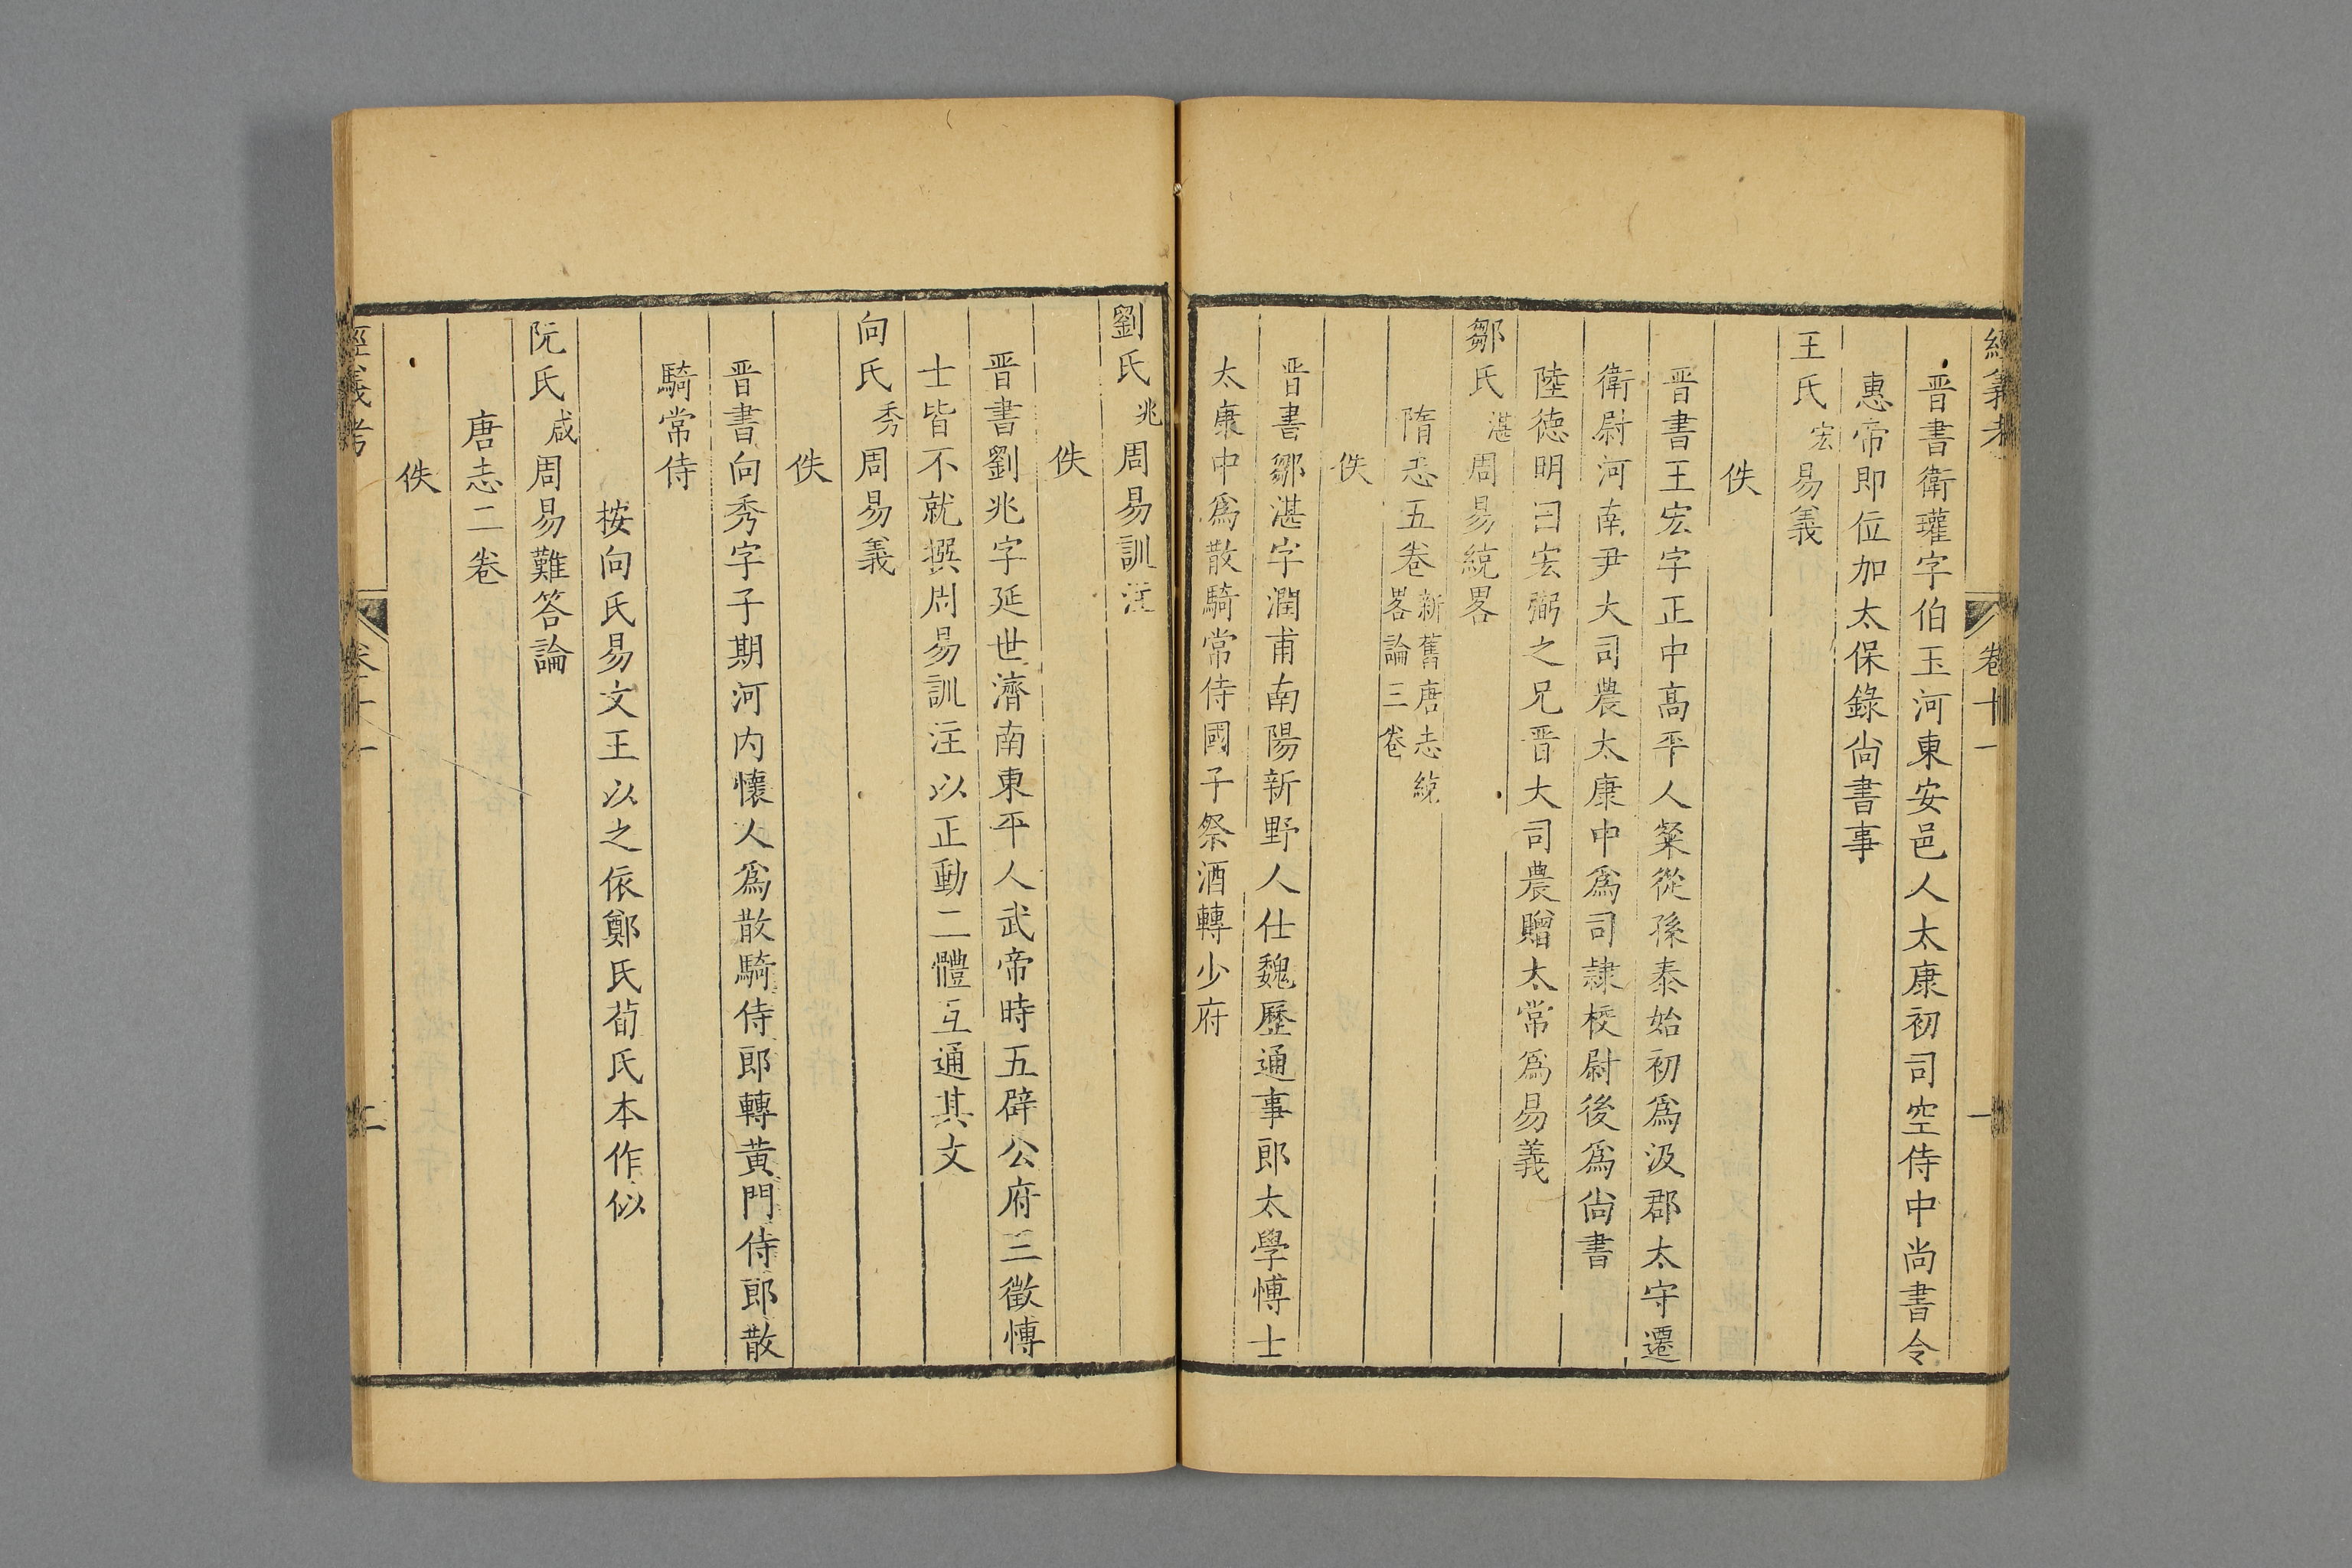 經義考 卷十一 一
晋書衛瓘字伯玉河東安邑人太康初司空侍中尚書令
惠帝即位加太保錄尚書事
王氏宏易義
佚
晋書王宏字正中髙平人粲從孫泰始初爲汲郡太守遷
衛尉河南尹大司農太康中爲司隷校尉後爲尚書
陸德明曰宏弼之兄晋大司農贈太常爲易義
鄒氏湛周易統畧
隋志五卷新舊唐志統
畧論三卷
佚
晋書鄒湛字潤甫南陽新野人仕魏歷通事郎太學博士
太康中爲散騎常侍國子祭酒轉少府
劉氏兆周易訓注
佚
晋書劉兆字延世濟南東平人武帝時五辟公府三徵博
士皆不就撰周易訓注以正動二體互通其文
向氏秀周易義
佚
晋書向秀字子期河内懷人爲散騎侍郎轉黄門侍郎散
騎常侍
按向氏易文王以之依鄭氏荀氏本作似
阮氏咸周易難答論
唐志二卷
佚
經義考 卷十一 二